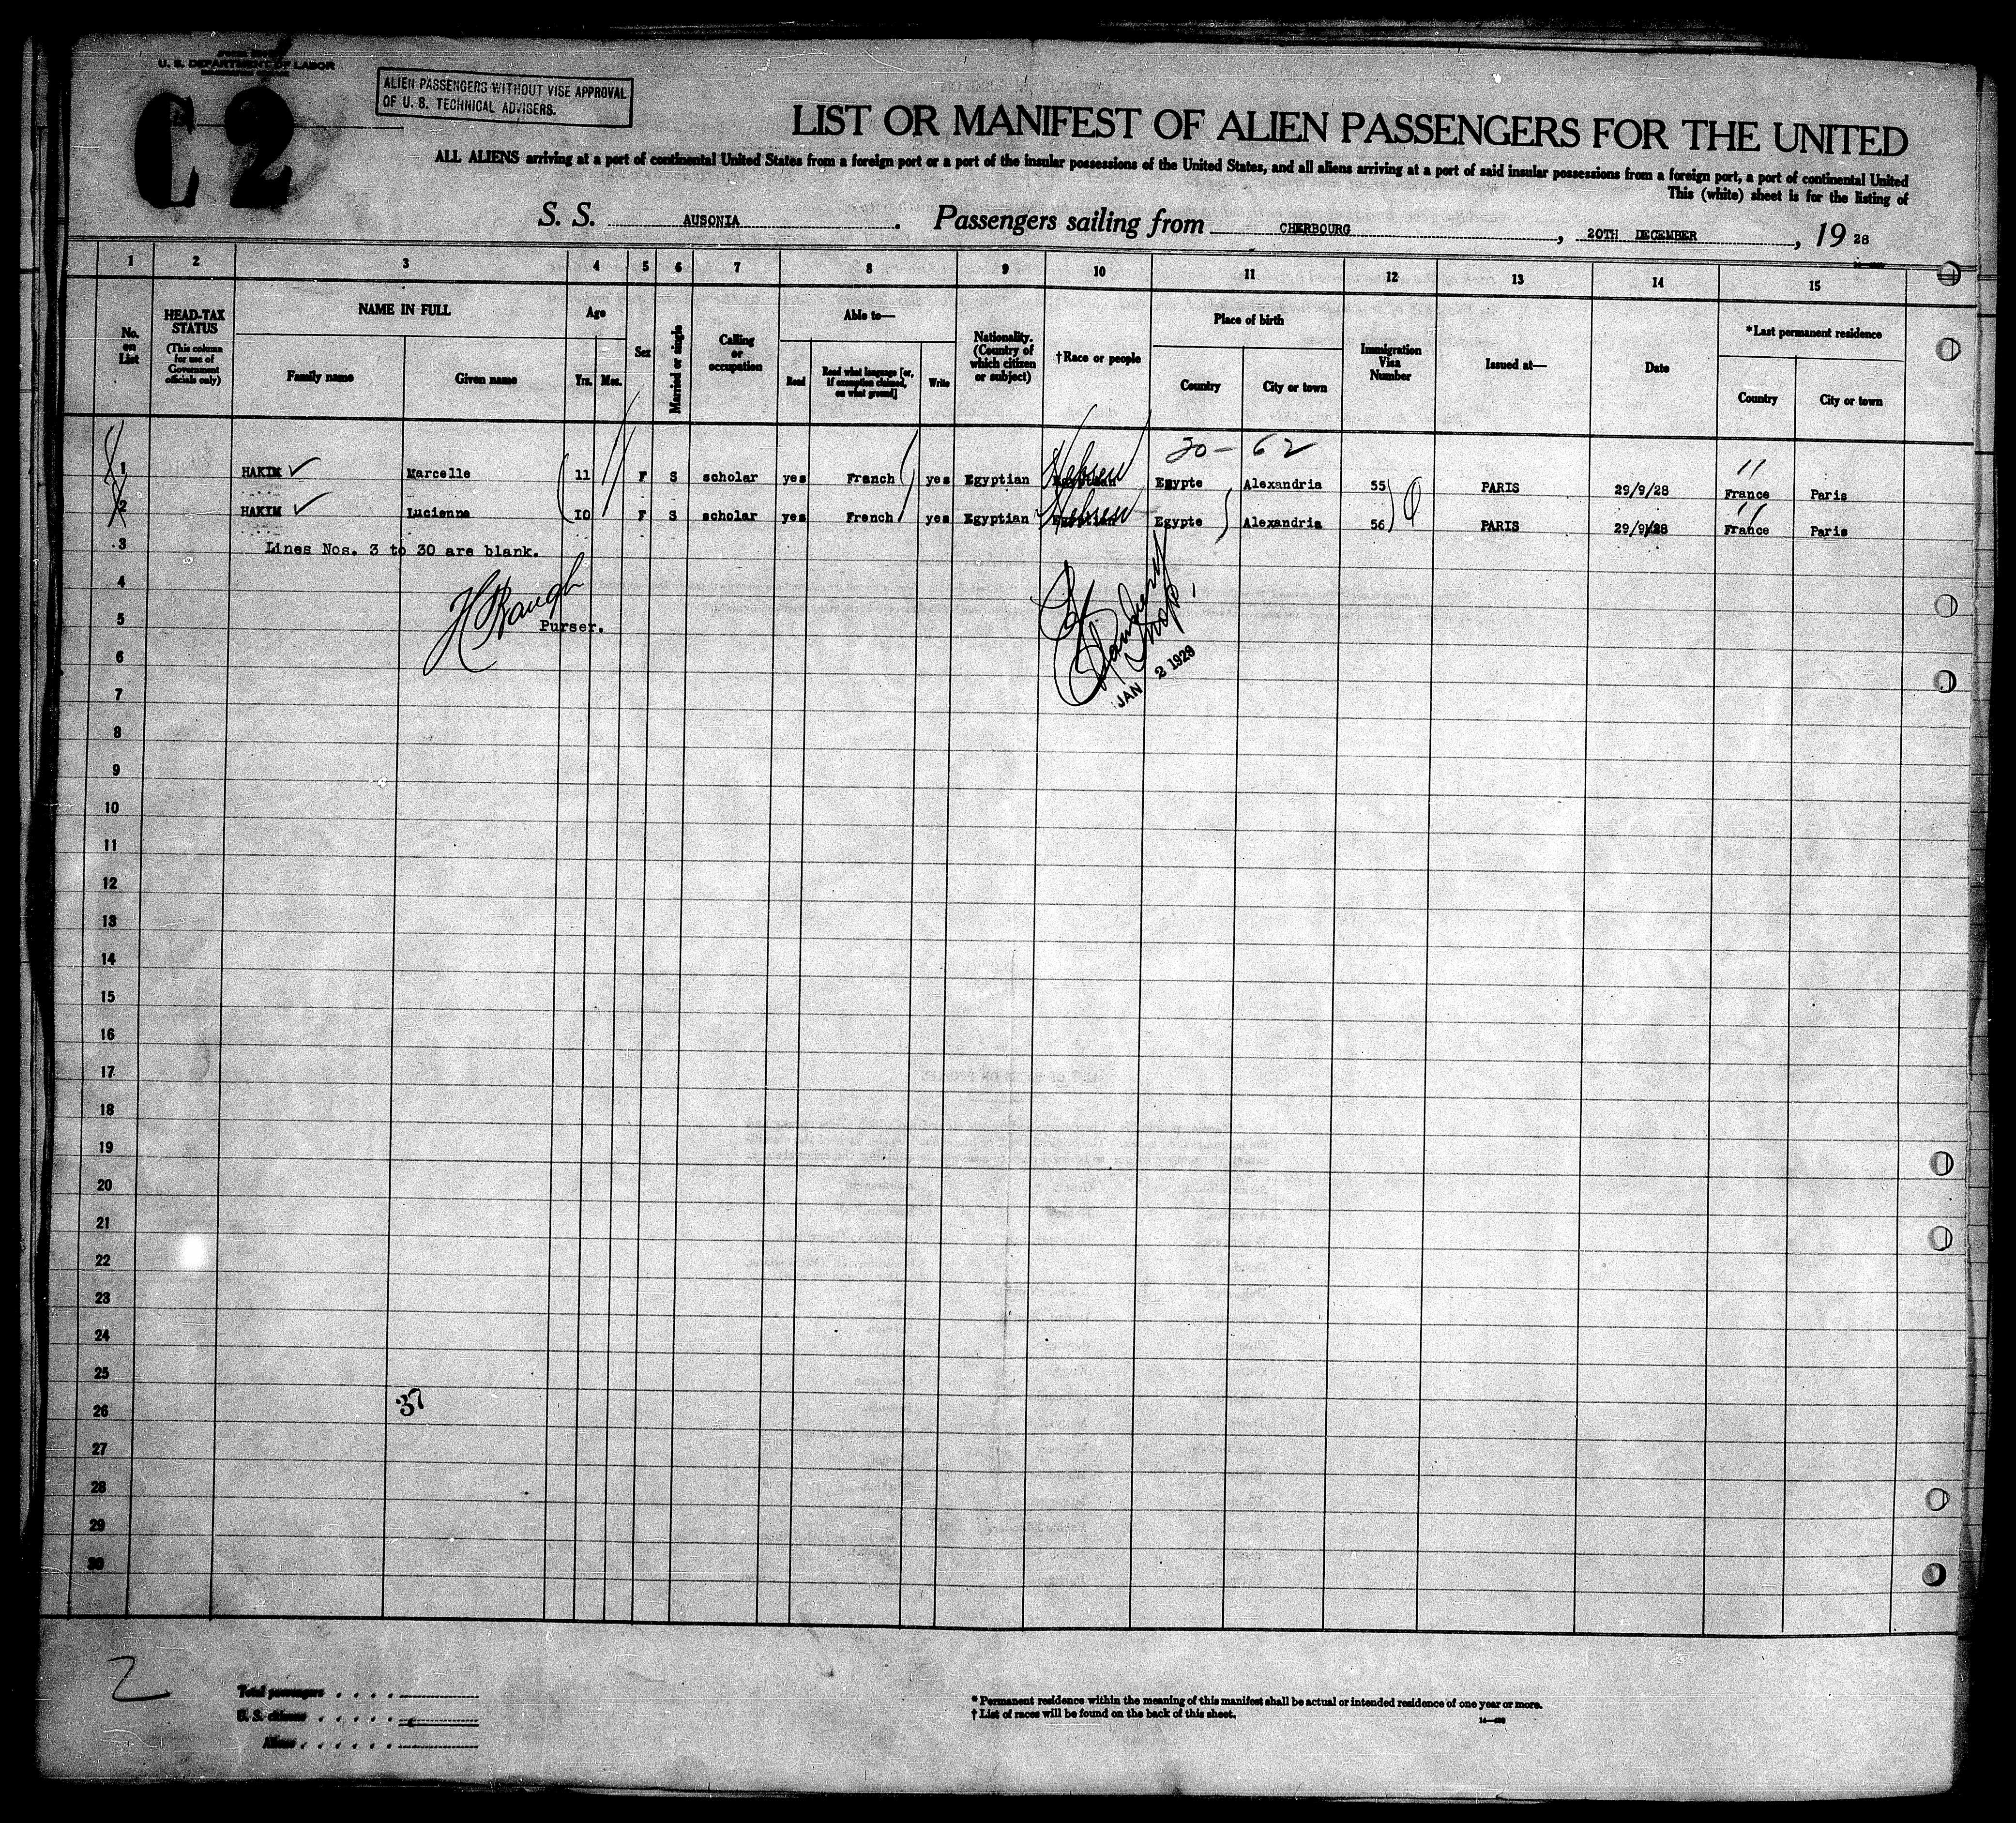 U. S. DEPARTMENT OF LABOR
C 2
ALIEN PASSENGERS WITHOUT VISE APPROVAL
OF U. S. TECHNICAL ADVISERS.
LIST OR MANIFEST OF ALIEN PASSENGERS FOR THE UNITED
ALL ALIENS arriving at a port of continental United States from a foreign port or a port of the insular possessions of the United States, and all aliens arriving at a port of said insular possessions from a foreign port, a port of continental United
This (white) sheet is for the listing of
S. S. AUSONIA. Passengers sailing from CHERBOURG, 20TH DECEMBER, 19 28
1 2 3 4 5 6 7 8 9 10 11 12 13 14 15
No. on List
HEAD-TAX STATUS (This column for use of Government officials only)
NAME IN FULL
Family name
Given name
Age
Yrs. Mos.
Sex
Married or single
Calling or occupation
Able to—
Read
Read what language [or, if exemption claimed, on what ground]
Write
Nationality. (Country of which citizen or subject)
†Race or people
Place of birth
Country
City or town
Immigration Visa Number
Issued at—
Date
*Last permanent residence
Country
City or town
20 - 62
1 HAKIM Marcelle 11 F S scholar yes French yes Egyptian Hebrew Egypte Alexandria 55 PARIS 29/9/28 France Paris
2 HAKIM Lucienne 10 F S scholar yes French yes Egyptian Hebrew Egypte Alexandria 56 PARIS 29/9/28 France Paris
3 Lines Nos. 3 to 30 are blank.
4
5 Purser.
6
JAN 2 1929
7
8
9
10
11
12
13
14
15
16
17
18
19
20
21
22
23
24
25
37
26
27
28
29
30
2
Total passengers
U. S. citizens
Aliens
* Permanent residence within the meaning of this manifest shall be actual or intended residence of one year or more.
† List of races will be found on the back of this sheet.